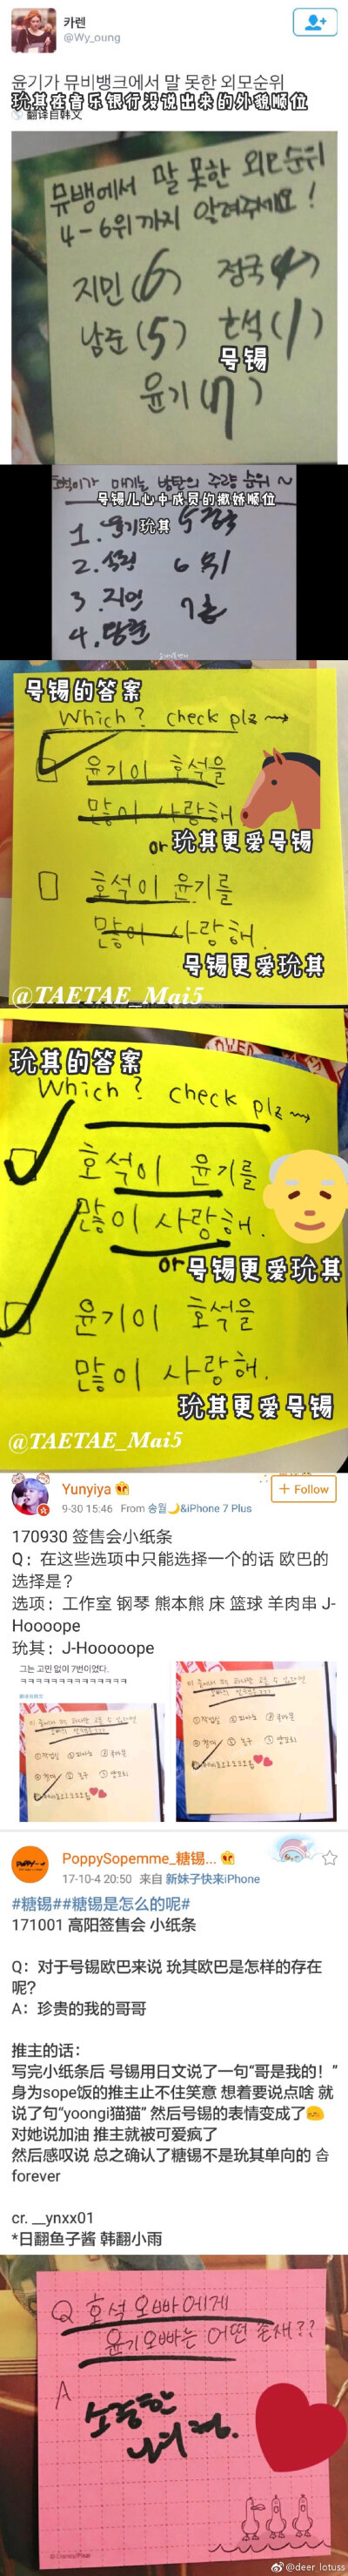 카렌
@Wy_oung
윤기가 뮤비뱅크에서 말 못한 외모순위
玧其在音乐银行没说出来的外貌顺位
翻译自韩文
뮤뱅에서 말 못한 외모순위
4-6위까지 알려주세요!
지민(6) 정국(4)
남준(5) 호석(1)
号锡
윤기(7)
号锡儿心中成员的撒娇顺位
1. 윤기 玧其 5 정국
2. 석진 6 뷔
3. 지민 7 홉
4. 남준
号锡的答案
Which? check plz →
윤기이 호석을
많이 사랑해
or 玧其更爱号锡
호석이 윤기를
많이 사랑해.
号锡更爱玧其
@TAETAE_Mai5
玧其的答案
Which? check plz →
호석이 윤기를
많이 사랑해.
or 号锡更爱玧其
윤기이 호석을
많이 사랑해.
玧其更爱号锡
@TAETAE_Mai5
Yunyiya
+ Follow
9-30 15:46 From 송월🌙&iPhone 7 Plus
170930 签售会小纸条
Q：在这些选项中只能选择一个的话 欧巴的
选择是?
选项：工作室 钢琴 熊本熊 床 篮球 羊肉串 J-
Hoooope
玧其：J-Hooooope
그는 고민 없이 7번이었다.
ㅋㅋㅋㅋㅋㅋㅋㅋㅋㅋㅋㅋㅋㅋ
①작업실 ②피아노 ③쿠마몬
④침대 ⑤농구 ⑥양꼬치
①작업실 ②피아노 ③쿠마몬
④침대 ⑤농구 ⑥양꼬치
PopPySopemme_糖锡...
17-10-4 20:50 来自 新妹子快来iPhone
#糖锡##糖锡是怎么的呢#
171001 高阳签售会 小纸条
Q：对于号锡欧巴来说 玧其欧巴是怎样的存在
呢?
A：珍贵的我的哥哥
推主的话：
写完小纸条后 号锡用日文说了一句“哥是我的！”
身为sope饭的推主止不住笑意 想着要说点啥 就
说了句“yoongi猫猫” 然后号锡的表情变成了😊
对她说加油 推主就被可爱疯了
然后感叹说 总之确认了糖锡不是玧其单向的 솝
forever
cr. __ynxx01
*日翻鱼子酱 韩翻小雨
Q 호석 오빠에게
윤기오빠는 어떤 존재??
A 소중한
나의 형.
@deer_lotuss